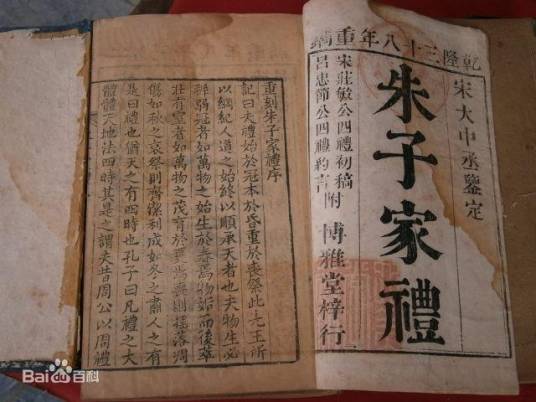 乾隆三十八年重鐫
宋大中丞鑒定
朱子家禮
宋莊敏公四禮初稿
呂忠節公四禮約言
附
博雅堂梓行
重刻朱子家禮序
記曰夫禮始於冠本於昏重於喪祭此先王所
以綱紀人道之始終以順承天者也夫物生必
穉弱冠者如萬物之始生於春焉物始而後萃
壯有室者如萬物之茂育於夏焉則搖落凋
傷如秋之哀祭則齊潔利成如冬之肅人之有
是四禮也猶天之有四時也孔子曰凡禮之大
體體天地法四時其是之謂夫昔周公以周禮
Baidu百科